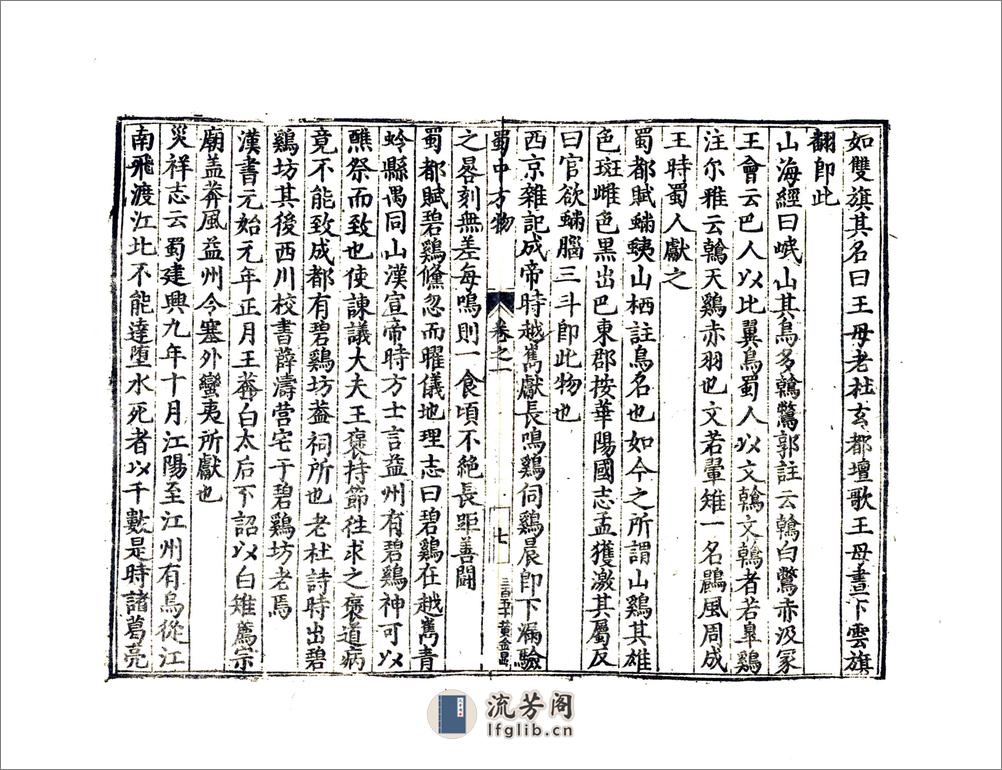 如雙旗其名曰王母老杜玄都壇歌王母晝下雲旗
翻卽此
山海經曰岷山其鳥多鶾鷩郭註云鶾白鷩赤汲冢
王會云巴人以比翼鳥蜀人以文鶾文鶾者若皐鷄
注尔雅云鶾天鷄赤羽也文若翬雉一名鷐風周成
王時蜀人獻之
蜀都賦䗚蛦山栖註鳥名也如今之所謂山鷄其雄
色斑雌色黑出巴東郡按華陽國志孟獲激其屬反
曰官欲䗚腦三斗卽此物也
西京雜記成帝時越嶲獻長鳴鷄伺鷄晨卽下漏驗
蜀中方物
卷之一
七
三百五十 黃金昌
之晷刻無差每鳴則一食頃不絕長距善鬪
蜀都賦碧鷄儵忽而曜儀地理志曰碧鷄在越嶲青
蛉縣禺同山漢宣帝時方士言益州有碧鷄神可以
醮祭而致也使諫議大夫王褒持節往求之褒道病
竟不能致成都有碧鷄坊葢祠所也老杜詩時出碧
鷄坊其後西川校書薛濤营宅于碧鷄坊老焉
漢書元始元年正月王莽白太后下詔以白雉薦宗
廟盖莽風益州令塞外蠻夷所獻也
災祥志云蜀建興九年十月江陽至江州有鳥從江
南飛渡江北不能達堕水死者以千數是時諸葛亮
流芳阁
lfglib.cn